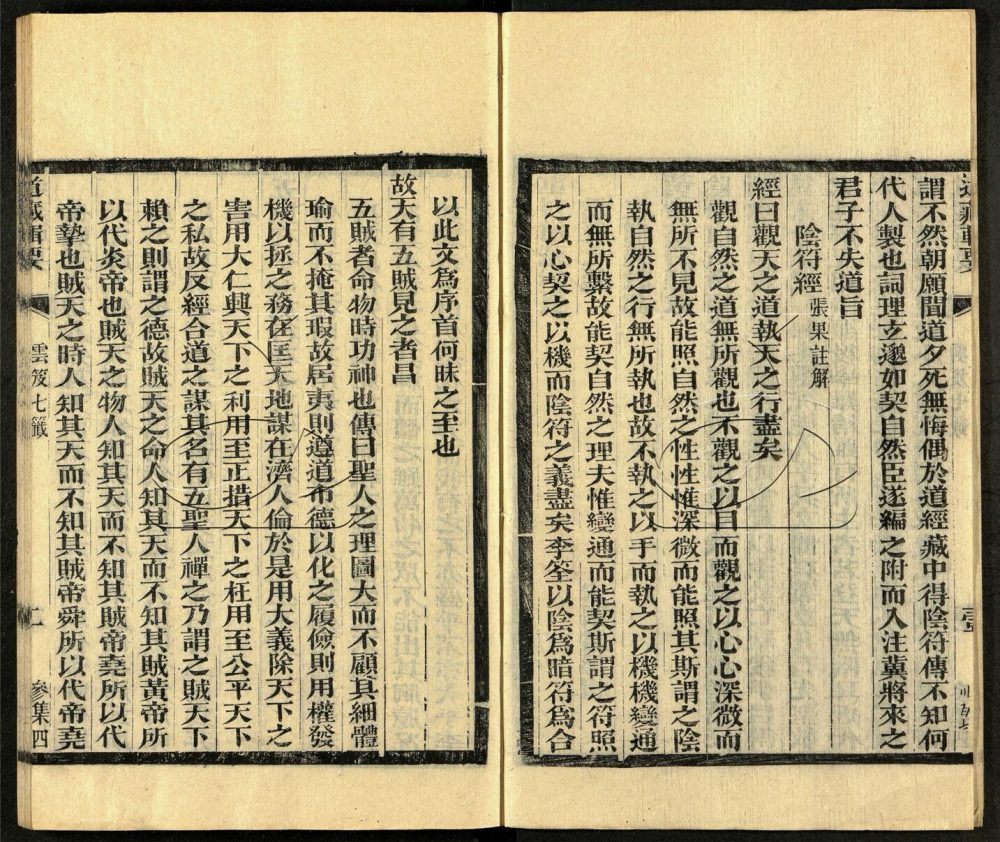 謂不然朝願聞道夕死無悔偶於道經藏中得陰符傳不知何
代人製也詞理玄邈如契自然臣遂編之附而入注冀將來之
君子不失道旨
陰符經 張果註解
經曰觀天之道執天之行盡矣
觀自然之道無所觀也不觀之以目而觀之以心心深微而
無所不見故能照自然之性性惟深微而能照其斯謂之陰
執自然之行無所執也故不執之以手而執之以機機變通
而無所繫故能契自然之理夫惟變通而能契斯謂之符照
之以心契之以機而陰符之義盡矣李筌以陰為暗符為合
以此文為序首何昧之至也
故天有五賊見之者昌
五賊者命物時功神也傳曰聖人之理圖大而不顧其細體
瑜而不掩其瑕故居夷則遵道布德以化之履儉則用權發
機以拯之務在匡天地謀在濟人倫於是用大義除天下之
害用大仁興天下之利用至正措天下之枉用至公平天下
之私故反經合道之謀其名有五聖人禪之乃謂之賊天下
賴之則謂之德故賊天之命人知其天而不知其賊黃帝所
以代炎帝也賊天之物人知其天而不知其賊帝堯所以代
帝摯也賊天之時人知其天而不知其賊帝舜所以代帝堯
道藏輯要 雲笈七籤 參集四